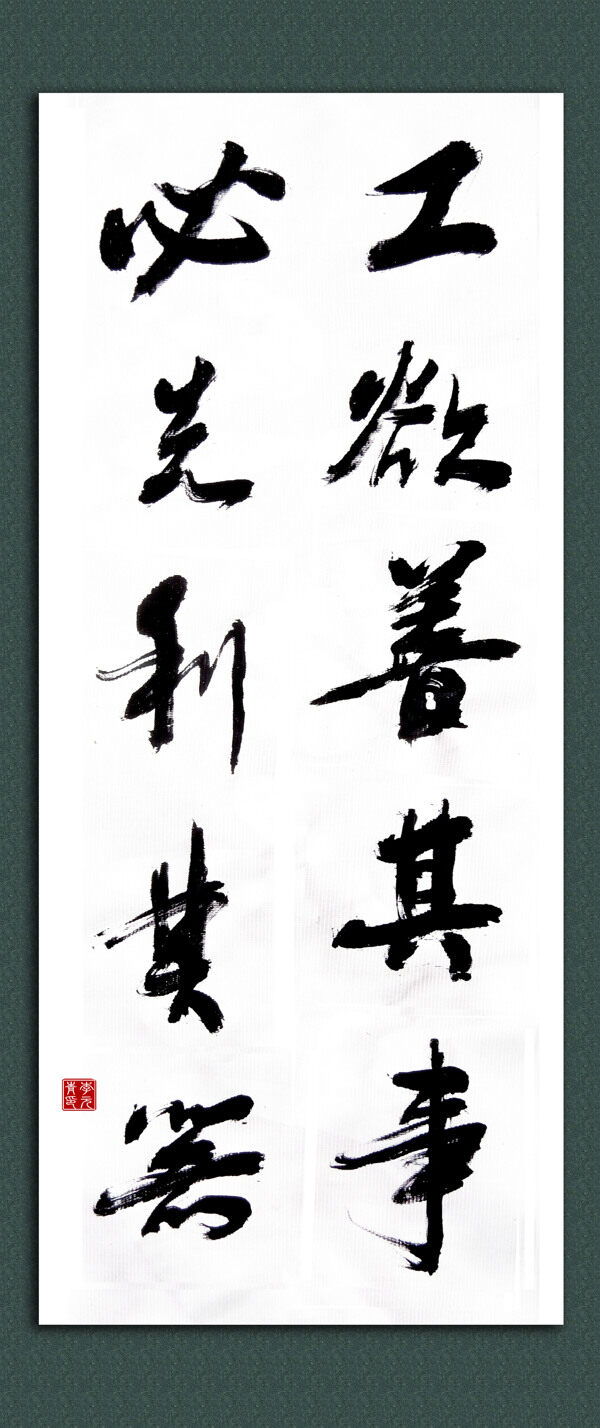 工欲善其事
必先利其器
李元青印